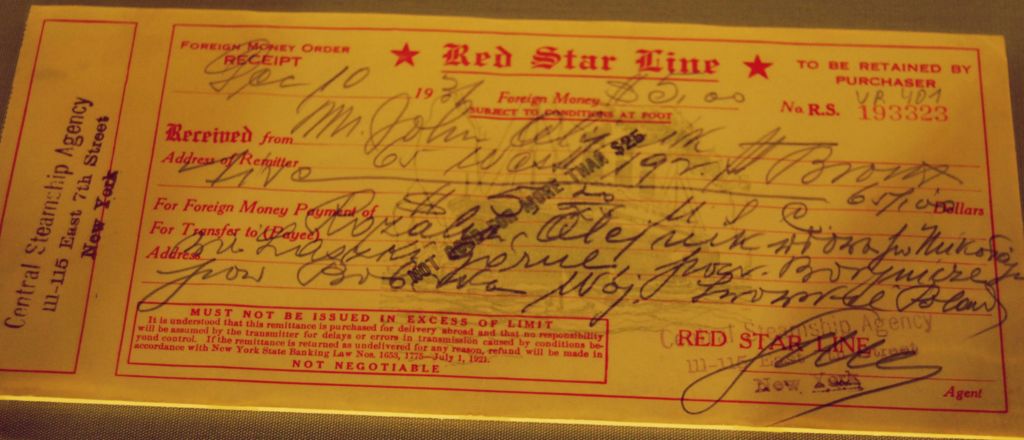 Central Steamship Agency
111-115 East 7th Street
New York
FOREIGN MONEY ORDER
RECEIPT
★ Red Star Line ★
TO BE RETAINED BY
PURCHASER
Dec 10 1936
Foreign Money $5.00
SUBJECT TO CONDITIONS AT FOOT
VR 401
No. R.S. 193323
Received from Mr. John Olejnik
Address of Remitter 61 West 192 St Bronx
Five 65/100 Dollars
For Foreign Money Payment of $5 U S C
NOT GOOD FOR MORE THAN $25
For Transfer to (Payee) Rozalia Olejnik
Address
pow Woj. Lwowskie Poland
MUST NOT BE ISSUED IN EXCESS OF LIMIT
It is understood that this remittance is purchased for delivery abroad and that no responsibility
will be assumed by the transmitter for delays or errors in transmission caused by conditions be-
yond control. If the remittance is returned as undelivered for any reason, refund will be made in
accordance with New York State Banking Law Nos. 1653, 1775—July 1, 1921.
NOT NEGOTIABLE
Central Steamship Agency
RED STAR LINE
111-115 East 7th Street
New York
Agent